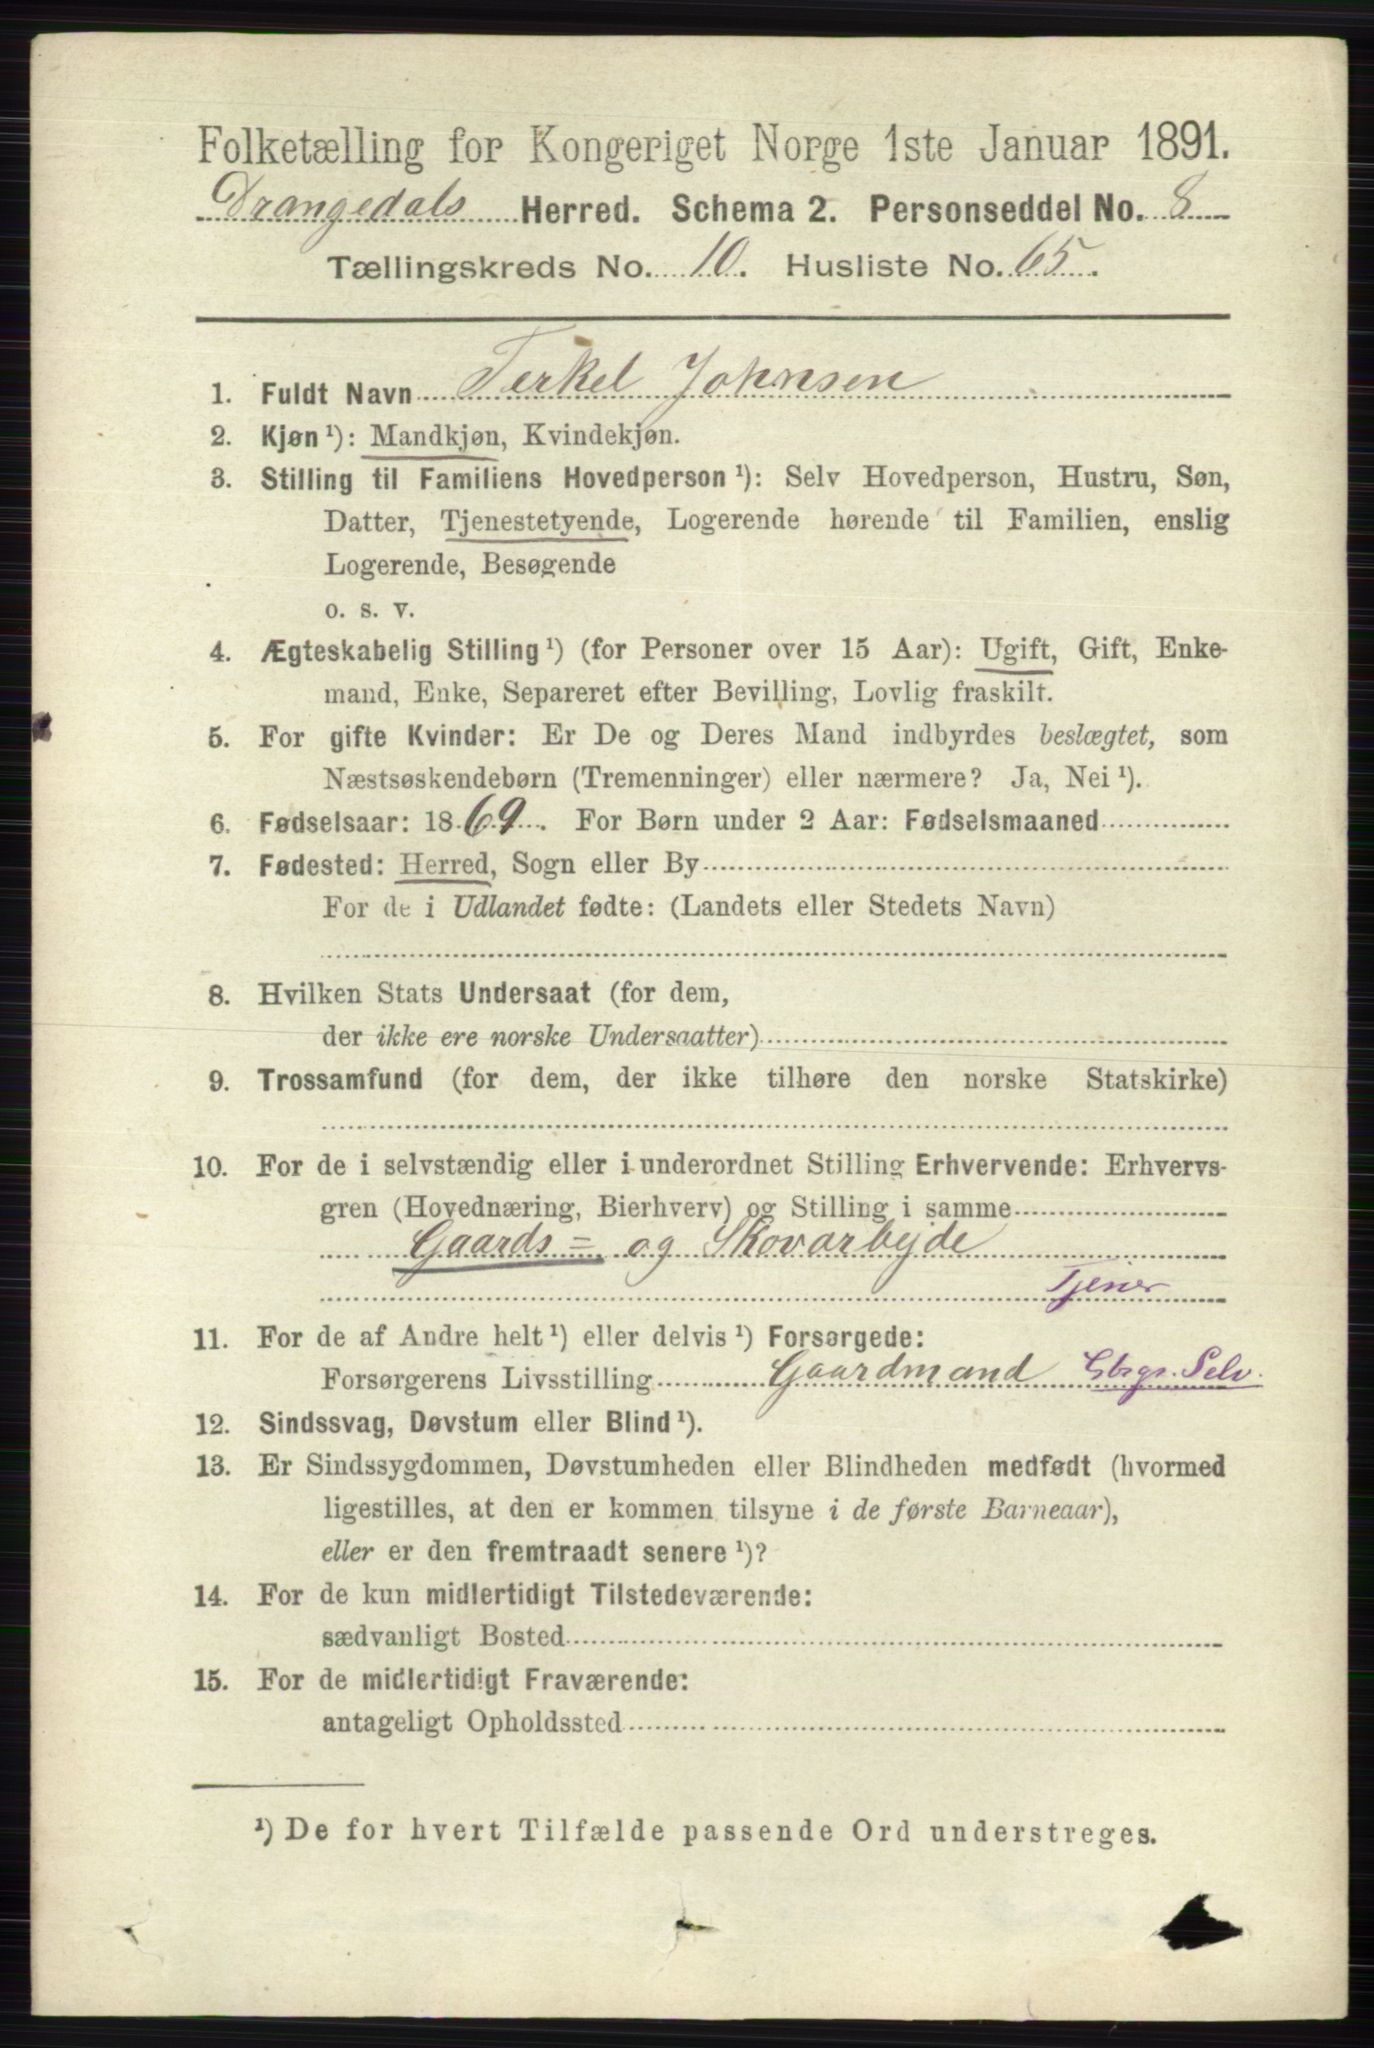 Folketælling for Kongeriget Norge 1ste Januar 1891.
Drangedals Herred. Schema 2. Personseddel No. 8
Tællingskreds No. 10. Husliste No. 65.
1. Fuldt Navn Terkel Johnsen
2. Kjøn ¹): Mandkjøn, Kvindekjøn.
3. Stilling til Familiens Hovedperson ¹): Selv Hovedperson, Hustru, Søn,
Datter, Tjenestetyende, Logerende hørende til Familien, enslig
Logerende, Besøgende
o. s. v.
4. Ægteskabelig Stilling ¹) (for Personer over 15 Aar): Ugift, Gift, Enke-
mand, Enke, Separeret efter Bevilling, Lovlig fraskilt.
5. For gifte Kvinder: Er De og Deres Mand indbyrdes beslægtet, som
Næstsøskendebørn (Tremenninger) eller nærmere? Ja, Nei ¹).
6. Fødselsaar: 1869. For Børn under 2 Aar: Fødselsmaaned
7. Fødested: Herred, Sogn eller By
For de i Udlandet fødte: (Landets eller Stedets Navn)
8. Hvilken Stats Undersaat (for dem,
der ikke ere norske Undersaatter)
9. Trossamfund (for dem, der ikke tilhøre den norske Statskirke)
10. For de i selvstændig eller i underordnet Stilling Erhvervende: Erhvervs-
gren (Hovednæring, Bierhverv) og Stilling i samme
Gaards= og Skovarbejde
Tjener
11. For de af Andre helt ¹) eller delvis ¹) Forsørgede:
Forsørgerens Livsstilling Gaardmand Gbrgr. Selv.
12. Sindssvag, Døvstum eller Blind ¹).
13. Er Sindssygdommen, Døvstumheden eller Blindheden medfødt (hvormed
ligestilles, at den er kommen tilsyne i de første Barneaar),
eller er den fremtraadt senere ¹)?
14. For de kun midlertidigt Tilstedeværende:
sædvanligt Bosted
15. For de midlertidigt Fraværende:
antageligt Opholdssted
¹) De for hvert Tilfælde passende Ord understreges.